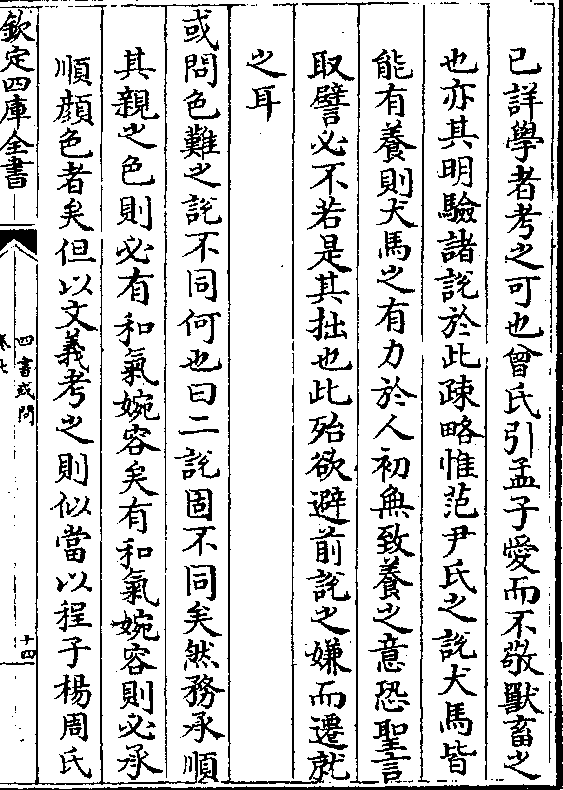 已詳學者考之可也曾氏引孟子愛而不敬獸畜之
也亦其明驗諸說於此疎略惟范尹氏之說犬馬皆
能有養則犬馬之有力於人初無致養之意恐聖言
取譬必不若是其拙也此殆欲避前說之嫌而遷就
之耳
或問色難之說不同何也曰二說固不同矣然務承順
其親之色則必有和氣婉容矣有和氣婉容則必承
順顔色者矣但以文義考之則似當以程子楊周氏
欽定四庫全書
四書或問
卷七
十四